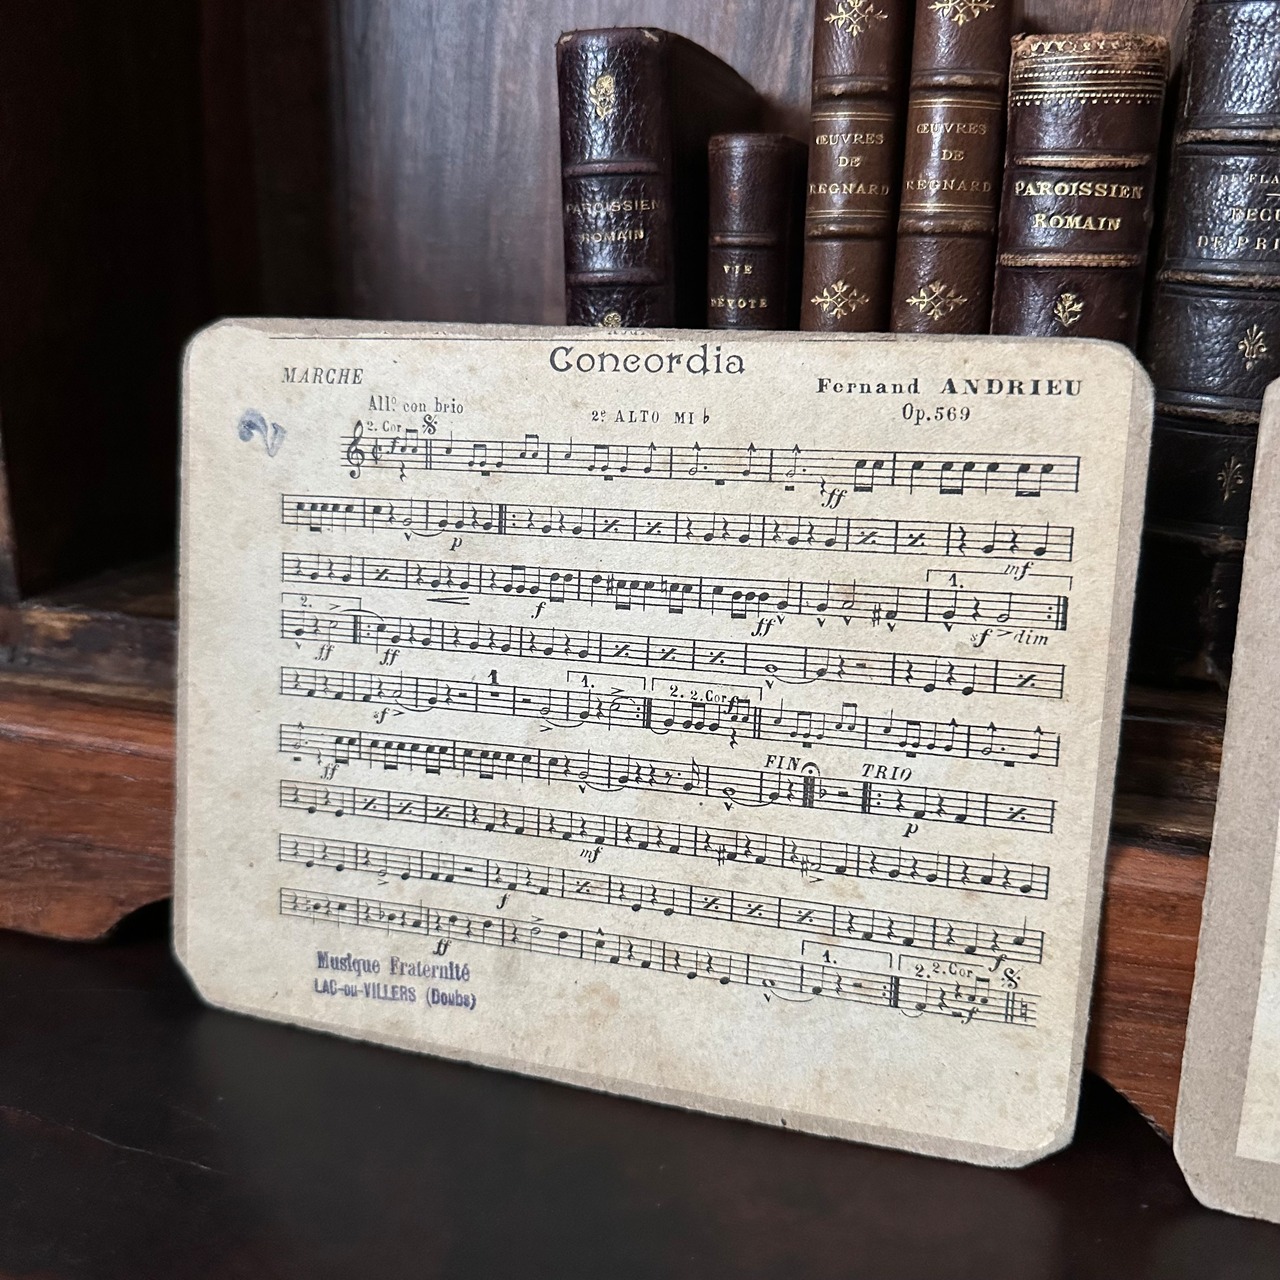 PAROISSIEN
ROMAIN
VIE
DÉVOTE
ŒUVRES
DE
REGNARD
ŒUVRES
DE
REGNARD
PAROISSIEN
ROMAIN
Concordia
MARCHE
Fernand ANDRIEU
Op.569
All? con brio
2º ALTO MI ♭
2. Cor
f
ff
p
mf
1.
f
ff
sf dim
2.
ff
ff
1
1.
2. 2. Cor
f
sf
FIN
TRIO
ff
p
mf
f
f
ff
1.
2. 2. Cor
f
Musique Fraternité
LAC-ou-VILLERS (Doubs)